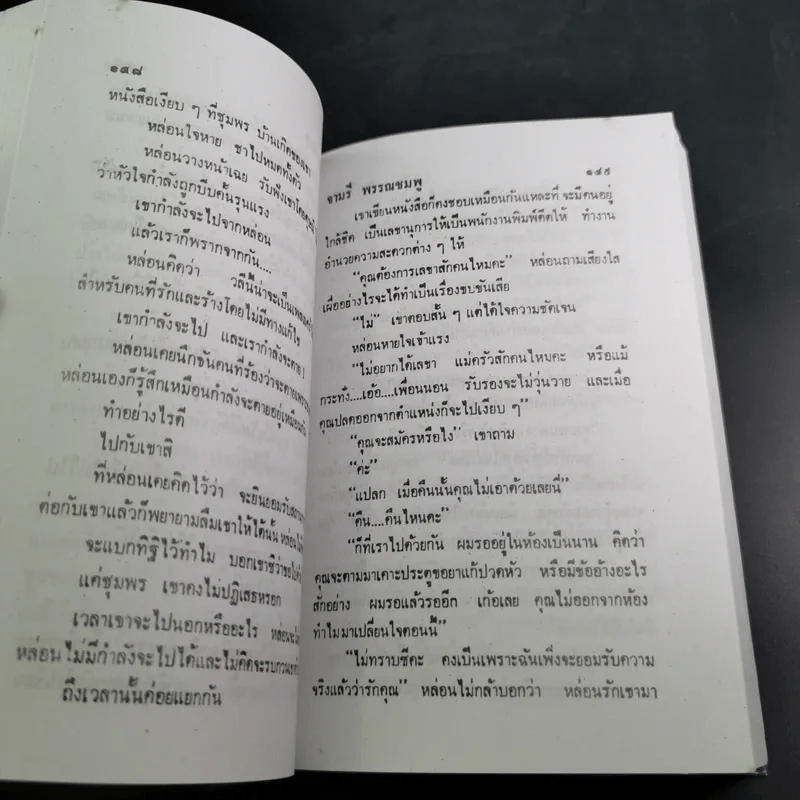 ๑๔๘
หนังสือเงียบ ๆ ที่ชุมพร บ้านเกิดของเขา
หล่อนใจหาย ชาไปหมดทั้งตัว
หล่อนวางหน้าเฉย รับฟังเขาโดยดุษณี
ว่าหัวใจกำลังถูกบีบคั้นรุนแรง
เขากำลังจะไปจากหล่อน
แล้วเราก็พรากจากกัน....
หล่อนคิดว่า วลีนี้น่าจะเป็นเพลง
สำหรับคนที่รักและร้างโดยไม่มีทางแก้ไข
เขากำลังจะไป และเรากำลังจะตาย !
หล่อนเคยนึกขันคนที่ร้องว่าจะตายเพราะ
หล่อนเองก็รู้สึกเหมือนกำลังจะตายอยู่เหมือนกัน
ทำอย่างไรดี
ไปกับเขาสิ
ที่หล่อนเคยคิดไว้ว่า จะยินยอมรับสถาน
ต่อกับเขาแล้วก็พยายามลืมเขาให้ได้นั้น หล่อน
จะแบกทิฐิไว้ทำไม บอกเขาซีว่าขอไป
แค่ชุมพร เขาคงไม่ปฏิเสธหรอก
เวลาเขาจะไปนอกหรืออะไร หล่อน
หล่อนไม่มีกำลังจะไปได้และไม่คิดจะรบกวน
ถึงเวลานั้นค่อยแยกกัน
จามรี พรรณชมพู ๑๔๙
เขาเขียนหนังสือก็คงชอบเหมือนกันแหละที่ จะมีคนอยู่
ใกล้ชิด เป็นเลขานุการให้เป็นพนักงานพิมพ์ดีดให้ ทำงาน
อำนวยความสะดวกต่าง ๆ ให้
“คุณต้องการเลขาสักคนไหมคะ” หล่อนถามเสียงใส
เผื่ออย่างไรจะได้ทำเป็นเรื่องขบขันเสีย
“ไม่” เขาตอบสั้น ๆ แต่ได้ใจความชัดเจน
หล่อนหายใจเข้าแรง
“ไม่อยากได้เลขา แม่ครัวสักคนไหมคะ หรือแม้
กระทั่ง....เอ้อ....เพื่อนนอน รับรองจะไม่วุ่นวาย และเมื่อ
คุณปลดออกจากตำแหน่งก็จะไปเงียบ ๆ”
“คุณจะสมัครหรือไง” เขาถาม
“ค่ะ”
“แปลก เมื่อคืนนั้นคุณไม่เอาด้วยเลยนี่”
“คืน....คืนไหนคะ”
“ก็ที่เราไปด้วยกัน ผมรออยู่ในห้องเป็นนาน คิดว่า
คุณจะตามมาเคาะประตูขอยาแก้ปวดหัว หรือมีข้ออ้างอะไร
สักอย่าง ผมรอแล้วรออีก เก้อเลย คุณไม่ออกจากห้อง
ทำไมมาเปลี่ยนใจตอนนี้”
“ไม่ทราบซีคะ คงเป็นเพราะฉันเพิ่งจะยอมรับความ
จริงแล้วว่ารักคุณ” หล่อนไม่กล้าบอกว่า หล่อนรักเขามา